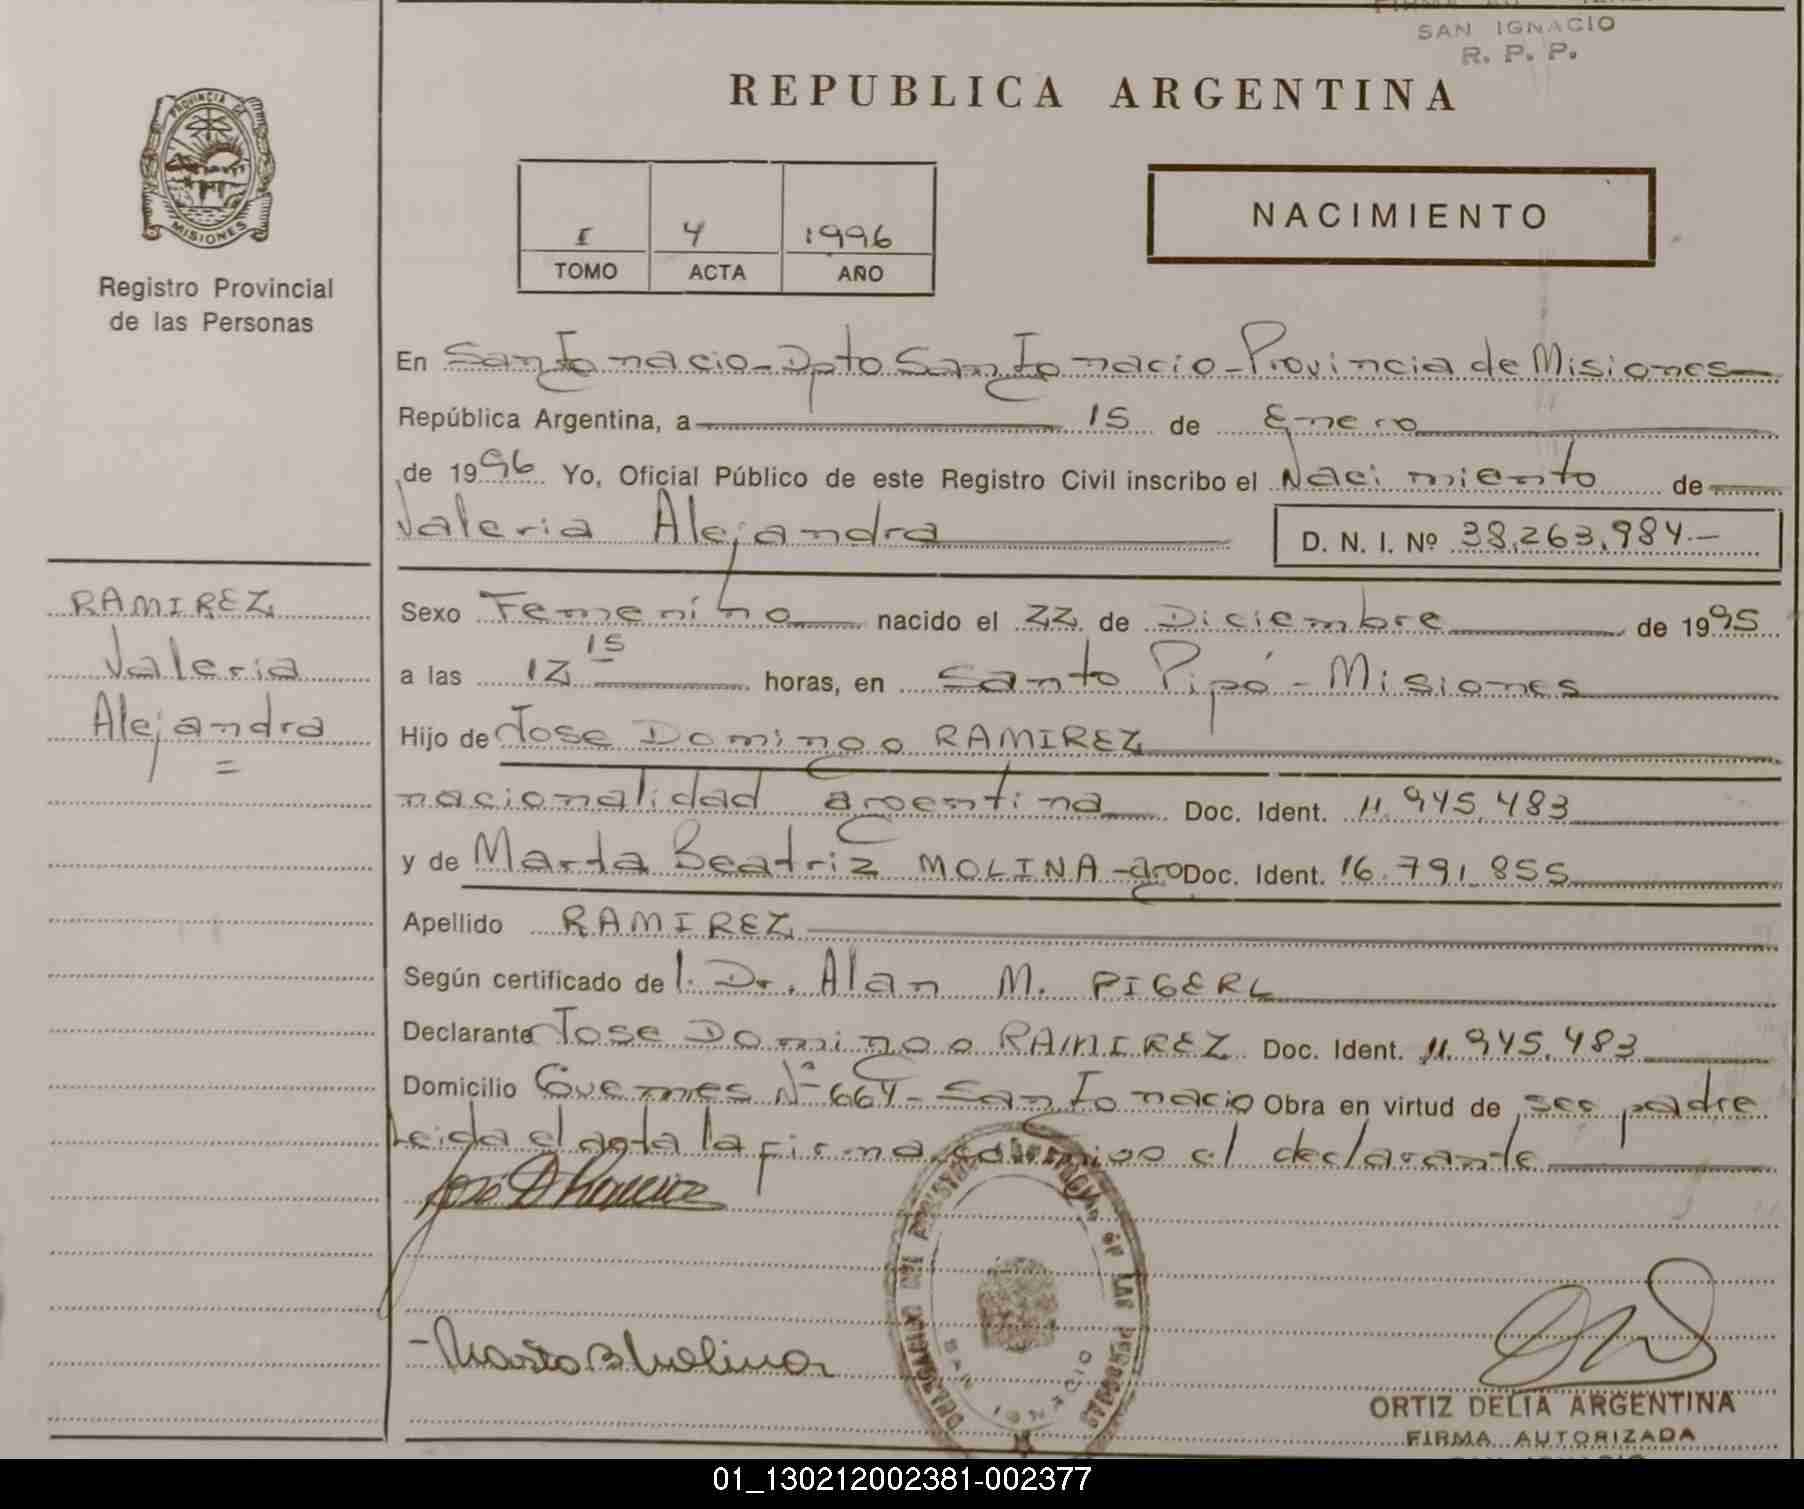 SAN IGNACIO
R. P. P.
REPUBLICA ARGENTINA
PROVINCIA DE
MISIONES
Registro Provincial
de las Personas
I 4 1996
TOMO ACTA AÑO
NACIMIENTO
En San Ignacio - Dpto San Ignacio - Provincia de Misiones
República Argentina, a 15 de Enero
de 1996 Yo, Oficial Público de este Registro Civil inscribo el Nacimiento de
Valeria Alejandra
D. N. I. Nº 38,263,984.-
RAMIREZ
Valeria
Alejandra
=
Sexo Femenino nacido el 22 de Diciembre de 1995
a las 12 15 horas, en Santo Pipó - Misiones
Hijo de Jose Domingo RAMIREZ
nacionalidad argentina Doc. Ident. 11.945.483
y de Marta Beatriz MOLINA - arg Doc. Ident. 16.791.855
Apellido RAMIREZ
Según certificado de l. Dr. Alan M. PIGERL
Declarante Jose Domingo RAMIREZ Doc. Ident. 11.945.483
Domicilio Guemes Nº 664 - San Ignacio Obra en virtud de ser padre
Leida el acta la firma conmigo el declarante
Marta B Molina
DELEGACION DEL REGISTRO PROVINCIAL DE LAS PERSONAS
SAN IGNACIO
ORTIZ DELIA ARGENTINA
FIRMA AUTORIZADA
SAN IGNACIO
01_130212002381-002377